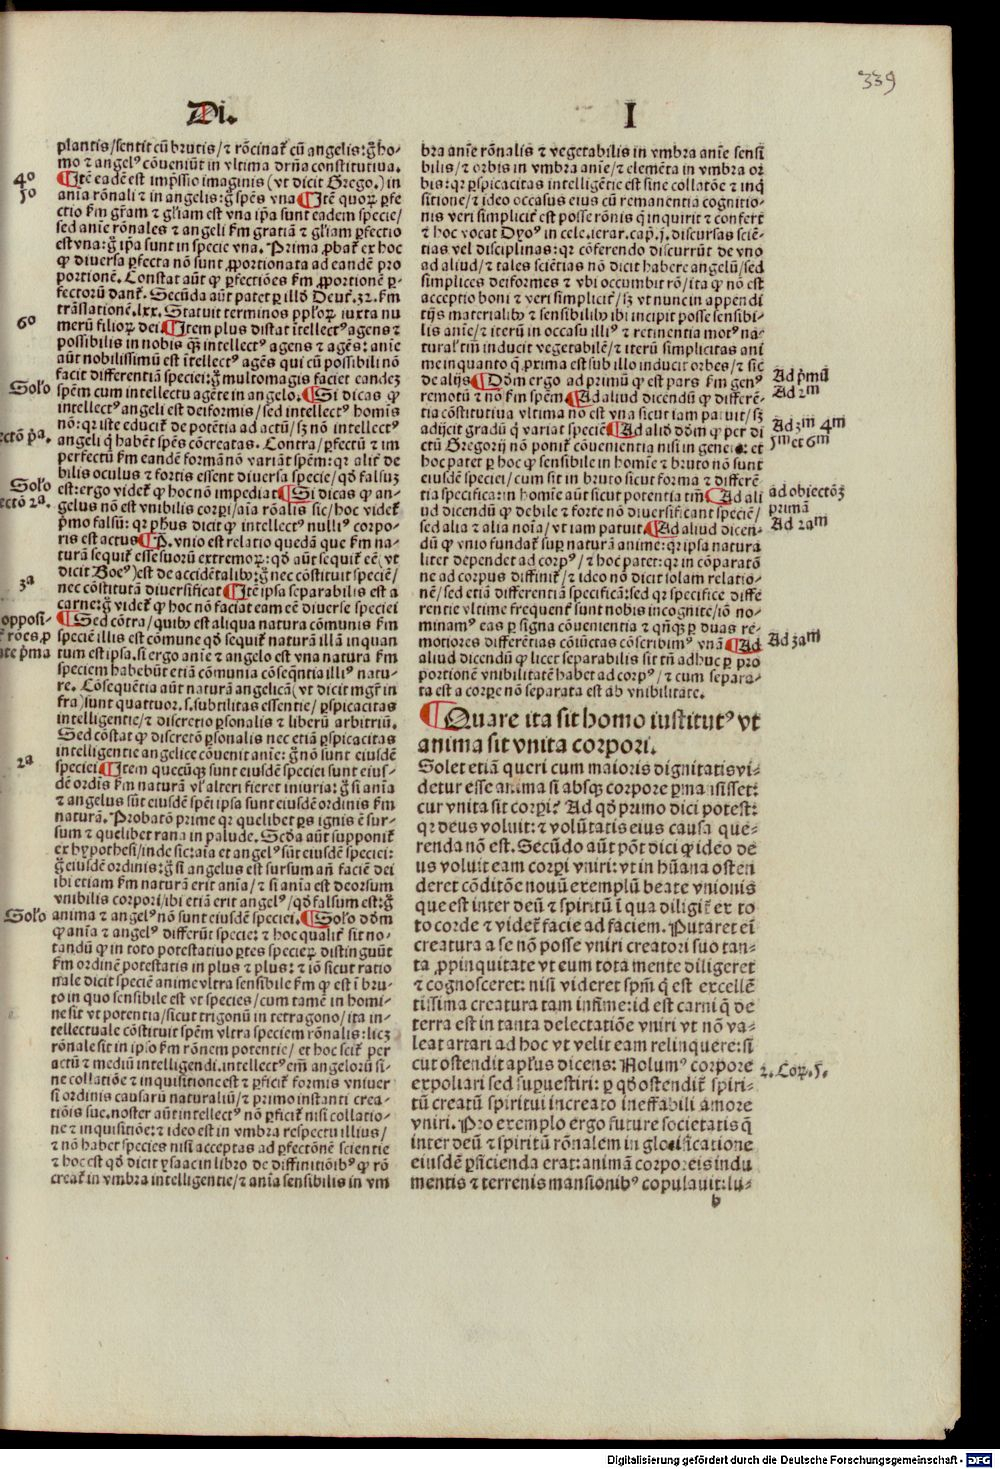 339
Di. I
plantis/sentit cū brutis/⁊ rōcinat̄ cū angelis:g̈ ho-
mo ⁊ angelꝰ cōveniūt in vltima dr̄na constitutiua.
¶Itē eadē est imp̄ssio imaginis (vt dicit Grego.) in
aīa rōnali ⁊ in angelis:g̈ spēs vna ¶Itē quoꝝ ꝑfe
ctio fm gr̄am ⁊ gl̄iam est vna ip̄a sunt eadem specie/
sed anie rōnales ⁊ angeli fm gratiā ⁊ gl̄iam ꝑfectio
est vna:g̈ ip̄a sunt in specie vna. Prima ꝓbat̄ ex hoc
ꝙ diuersa ꝑfecta nō sunt ꝓportionata ad eandē pro
portionē. Constat aūt ꝙ ꝑfectiōes fm ꝓportionē ꝑ-
fectorū dant̄. Secūda aūt patet ꝑ illđ Deut̄.32. fm
trāslationē.lxx. Statuit terminos pp̄loꝝ iuxta nu
merū filioꝝ dei ¶Item plus distat ītellectꝰ agens ⁊
possibilis in nobis q̄ȝ intellectꝰ agens ⁊ agēs: anie
aūt nobilissimū est ītellectꝰ agēs qui cū possibili nō
facit differentiā speciei:g̈ multomagis faciet eandeȝ
spēm cum intellectu agēte in angelo. ¶Si dicas ꝙ
intellectꝰ angeli est deiformis/sed intellectꝰ homīs
nō: qꝛ iste educit̄ de potētia ad actū/sȝ nō intellectꝰ
angeli q̇ habēt spēs cōcreatas. Contra/ꝑfectū ⁊ im
perfectū fm eandē formā nō variāt spēm: qꝛ alit̄ de
bilis oculus ⁊ fortis essent diuersa specie/ qđ falsuȝ
est:ergo videt̄ ꝙ hoc nō impediat ¶Si dicas ꝙ an-
gelus nō est vnibilis corpi/aīa rōalis sic/hoc videt̄
p̄mo falsū: qꝛ ph̄us dicit ꝙ intellectꝰ nulliꝰ corpo-
ris est actus ¶P. vnio est relatio quedā que fm na-
turā sequit̄ esse suorū extremoꝝ: qđ aūt sequit̄ eē (vt
dicit Boeꝰ) est de accidētalibꝰ:g̈ nec cōstituit speciē/
nec cōstitutā diuersificat ¶Itē ipsa separabilis est a
carne:g̈ videt̄ ꝙ hoc nō faciat eam eē diuerse speciei
¶Sed cōtra/quibꝰ est aliqua natura cōmunis fm
speciē illis est cōmune qđ sequit̄ naturā illā inquan
tum est ipsa. si ergo anie ⁊ angelo est vna natura fm
speciem habebūt etiā cōmunia cōseq̄ntia illiꝰ natu-
re. Cōsequētia aūt naturā angelicā (vt dicit mgr̄ in
fra) sunt quattuor.s.subtilitas essentie/ ꝑspicacitas
intelligentie/⁊ discretio ꝑsonalis ⁊ liberū arbitriū.
Sed cōstat ꝙ discretō ꝑsonalis nec etiā ꝑspicacitas
intelligentie angelice cōuenit anie: g̈ nō sunt eiusdē
speciei ¶Item quecūqȝ sunt eiusdē speciei sunt eius-
dē ordīs fm naturā vl̓ alteri fieret iniuria: g̈ si aīa
⁊ angelus sūt eiusdē spēi ipsa sunt eiusdē ordinis fm
naturā. Probatō prime qꝛ quelibet ꝑs ignis ē sur-
sum ⁊ quelibet rana in palude. Secđa aūt supponit̄
ex hypothesi/inde sic:aīa et angelꝰ sūt eiusdē speciei:
g̈ eiusdē ordinis:g̈ si angelus est sursum añ faciē dei
ibi etiam fm naturā erit aīa/⁊ si aīa est deorsum
vnibilis corpori/ibi etiā erit angelꝰ/qđ falsum est:g̈
anima ⁊ angelꝰ nō sunt eiusdē speciei. ¶Solo dōm
ꝙ aīa ⁊ angelꝰ differūt specie: ⁊ hoc qualit̄ sit no-
tandū ꝙ in toto potestatiuo ꝑtes specieꝝ distinguūt̄
fm ordinē potestatis in plus ⁊ plus: ⁊ iō sicut ratio
nale dicit speciē anime vltra sensibile fm ꝙ est ī bru-
to in quo sensibile est vt species/cum tamē in homi-
ne sit vt potentia/sicut trigonū in tetragono/ita in-
tellectuale cōstituit spēm vltra speciem rōnalis: licȝ
rōnale sit in ipso fm rōnem potentie/ et hoc scit̄ per
actū ⁊ mediū intelligendi.intellectꝰ em̄ angelorū si-
ne collatiōe ⁊ inquisitione est ⁊ ꝑficit̄ formis vniuer
si ordinis causarū naturaliū/⁊ primo instanti crea-
tiōis sue.noster aūt intellectꝰ nō ꝑficit̄ nisi collatio-
ne ⁊ inquisitiōe: ⁊ ideo est in vmbra respectu illius/
⁊ nō habet species nisi acceptas ad ꝑfectōnē scientie
⁊ hoc est qđ dicit ysaac in libro de diffinitiōibꝰ ꝙ rō
creat̄ in vmbra intelligentie/⁊ aīa sensibilis in vm
4º
5º
6º
Solo
ectō p̄a.
Solo
ectō 2ª.
3ª
opposi-
t̄ rōes ꝓ
te p̄ma
2ª
Solo
bra anie rōnalis ⁊ vegetabilis in vmbra anie sensi
bilis/⁊ orbis in vmbra anie/⁊ elemēta in vmbra or
bis: qꝛ ꝑspicacitas intelligētie est sine collatōe ⁊ inq̇
sitione/⁊ ideo occasus eius cū remanentia cognitio-
nis veri simplicit̄ est posse rōnis q̇ inquirit ⁊ confert
⁊ hoc vocat Dyoꝰ in cele.ierar.cap.j. discursas sciē-
tias vel disciplinas: qꝛ cōferendo discurrūt de vno
ad aliud/⁊ tales sciētias nō dicit habere angelū/sed
simplices deiformes ⁊ vbi occumbit rō/ita ꝙ nō est
acceptio boni ⁊ veri simplicit̄/sȝ vt nunc in appendi
tijs materialibꝰ ⁊ sensibilibꝰ ibi incipit posse sensibi-
lis anie/⁊ iterū in occasu illiꝰ ⁊ retinentia motꝰ na-
tural̓ tm̄ inducit vegetabilē/⁊ iterū simplicitas ani
me inquanto q̇ prima est sub illo inducit orbes/⁊ sic
de alijs ¶Dōm ergo ad primū ꝙ est pars fm genꝰ
remotū ⁊ nō fm spēm ¶Ad aliud dicendū ꝙ differē-
tia cōstitutiua vltima nō est vna sicut iam patuit/sȝ
adijcit gradū q̇ variat speciē ¶Ad aliđ dōm ꝙ per di
ctū Gregorij nō ponit̄ cōuenientia nisi in genere: et
hoc patet ꝑ hoc ꝙ sensibile in homīe ⁊ bruto nō sunt
eiusdē speciei/cum sit in bruto sicut forma ⁊ differē-
tia specifica: in homīe aūt sicut potentia tm̄ ¶Ad ali
ud dicendū ꝙ debile ⁊ forte nō diuersificant speciē/
sed alia ⁊ alia noīa/vt iam patuit ¶Ad aliud dicen-
dū ꝙ vnio fundat̄ suꝑ naturā anime: qꝛ ipsa natura
liter dependet ad corpꝰ/⁊ hoc patet: qꝛ in cōparatō
ne ad corpus diffinit̄/⁊ ideo nō dicit solam relatio-
nē/sed etiā differentiā specificā: sed qꝛ specifice diffe
rentie vltime frequent̄ sunt nobis incognite/iō no-
minamꝰ eas ꝑ signa cōuenientia ⁊ qn̄qȝ ꝑ duas re-
motiores differētias cōiūctas cōscribimꝰ vnā ¶Ad
aliud dicendū ꝙ licet separabilis sit tn̄ adhuc ꝑ pro
portionē vnibilitatē habet ad corpꝰ/⁊ cum separa-
ta est a corpe nō separata est ab vnibilitate.
¶Quare ita sit homo īstitutꝰ vt
anima sit vnita corpori.
Solet etiā queri cum maioris dignitatis vi-
detur esse anima si absqȝ corpore ꝑmansisset:
cur vnita sit corpi? Ad qđ primo dici potest:
qꝛ deus voluit: ⁊ volūtatis eius causa que-
renda nō est. Secūdo aūt pōt dici ꝙ ideo de
us voluit eam corpi vniri: vt in hūana osten
deret cōditōe nouū exemplū beate vnionis
que est inter deū ⁊ spiritū ī qua diligit̄ ex to
to corde ⁊ videt̄ facie ad faciem. Putaret em̄
creatura a se nō posse vniri creatori suo tan-
ta ꝓpinquitate vt eum tota mente diligeret
⁊ cognosceret: nisi videret spm̄ q̇ est excellē
tissima creatura tam infime: id est carni q̄ de
terra est in tanta delectatiōe vniri vt nō va-
leat artari ad hoc vt velit eam relinquere: si
cut ostendit apl̓us dicens: Nolumꝰ corpore
expoliari sed supuestiri: ꝑ qđ ostendit̄ spiri-
tū creatū spiritui increato ineffabili amore
vniri. Pro exemplo ergo future societatis q̄
inter deū ⁊ spiritū rōnalem in glorificatione
eiusdē ꝑficienda erat: animā corporeis indu
mentis ⁊ terrenis mansionibꝰ copulauit: lu-
b
Ad p̄mū
Ad 2m
Ad 3m 4m
5m et 6m
ad obiectōȝ
primā
Ad 2am
Ad 3am
2.Coꝝ.5.
Digitalisierung gefördert durch die Deutsche Forschungsgemeinschaft - DFG